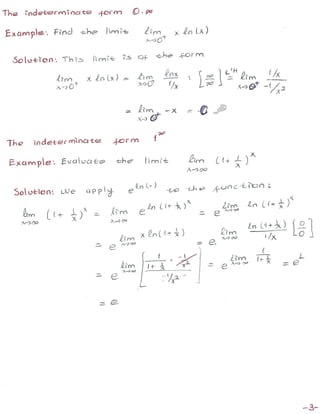 The indeterminate form 0.∞
Example: Find the limit lim x→0⁺ x ln(x)
Solution: This limit is of the form
lim x→0⁺ x ln(x) = lim x→0⁺ lnx / 1/x : [∞/∞] L'H = lim x→0⁺ 1/x / -1/x²
= lim x→0⁺ -x = 0
The indeterminate form 1^∞
Example: Evaluate the limit lim x→∞ (1+ 1/x)^x
Solution: we apply e^ln(·) to the function:
lim x→∞ (1+ 1/x)^x = lim x→∞ e^ln(1+ 1/x)^x = e^lim x→∞ ln(1+ 1/x)^x
= e^lim x→∞ x ln(1+ 1/x) = e^lim x→∞ ln(1+ 1/x) / 1/x [0/0]
= e^lim x→∞ [1/(1+ 1/x) · -1/x² / -1/x²] = e^lim x→∞ 1/(1+ 1/x) = e^1
= e
-3-